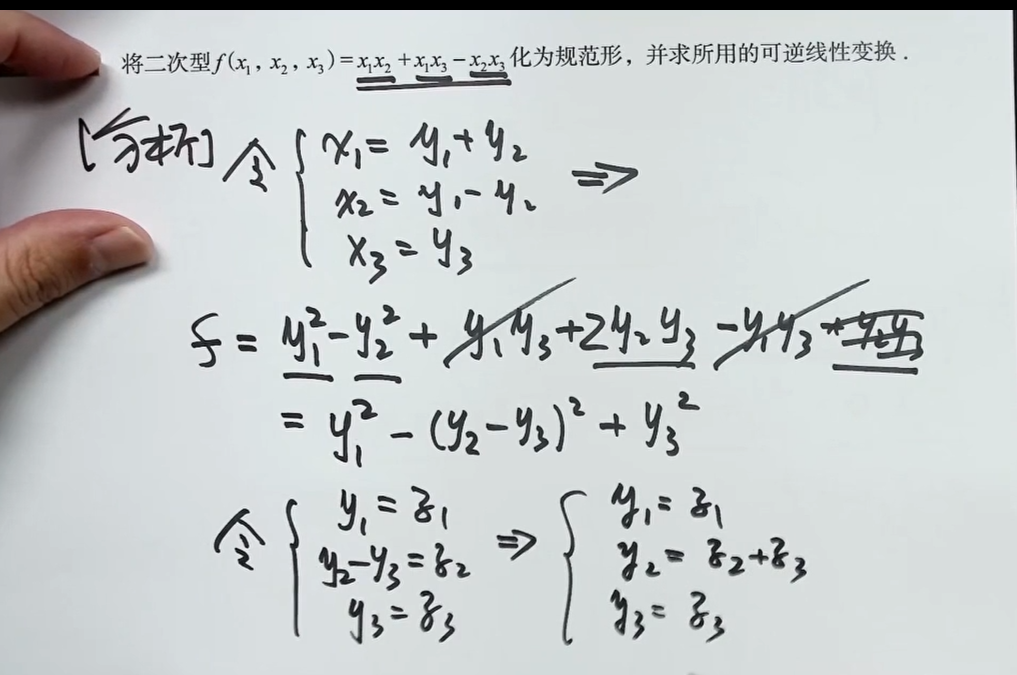 将二次型f(x₁, x₂, x₃)=x₁x₂+x₁x₃-x₂x₃化为规范形，并求所用的可逆线性变换.
[分析] 令 { x₁= y₁+y₂
x₂= y₁-y₂ ⇒
x₃=y₃
f= y₁²-y₂²+y₁y₃+2y₂y₃-y₁y₃+y₂y₃
= y₁²-(y₂-y₃)²+y₃²
令 { y₁=z₁ ⇒ { y₁=z₁
y₂-y₃=z₂ y₂=z₂+z₃
y₃=z₃ y₃=z₃